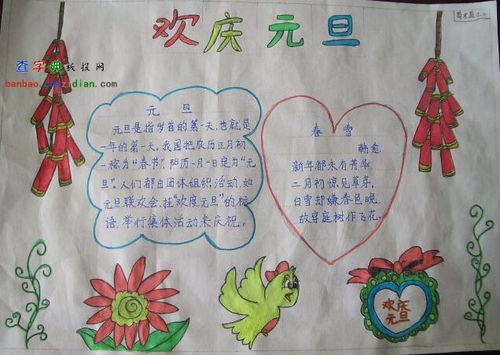 欢庆元旦
查字典板报网
banbao.chazidian.com
元旦
元旦是指岁首的第一天,也就是
一年的第一天。我国把农历正月初
一称为“春节”,阳历一月一日定为“元
旦”。人们都由团体组织活动,如
元旦联欢会,挂“欢度元旦”的标
语,举行集体活动来庆祝。
春雪
韩愈
新年都未有芳华,
二月初惊见草芽,
白雪却嫌春色晚,
故穿庭树作飞花。
欢庆
元旦